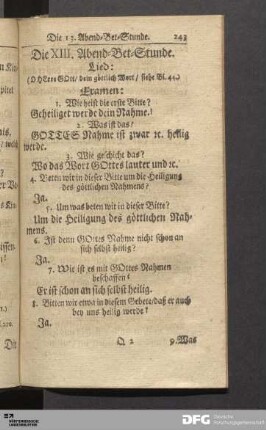 Die 13. Abend-Bet-Stunde. 243
Die XIII. Abend-Bet-Stunde.
Lied:
(O HErre GOtt/ dein göttlich Wort/ siehe Bl. 44.)
Examen:
1. Wie heist die erste Bitte?
Geheiliget werde dein Nahme.
2. Was ist das?
GOTTES Nahme ist zwar ꝛc. heilig
werde.
3. Wie geschicht das?
Wo das Wort GOttes lauter und ꝛc.
4. Beten wir in dieser Bitte um die Heiligung
des göttlichen Nahmens?
Ja.
5. Um was beten wir in dieser Bitte?
Um die Heiligung des göttlichen Nah-
mens.
6. Ist denn GOttes Nahme nicht schon an
sich selbst heilig?
Ja.
7. Wie ist es mit GOttes Nahmen
beschaffen?
Er ist schon an sich selbst heilig.
8. Bitten wir etwa in diesem Gebete/ daß er auch
bey uns heilig werde?
Ja.
Q 2 9. Was
DFG